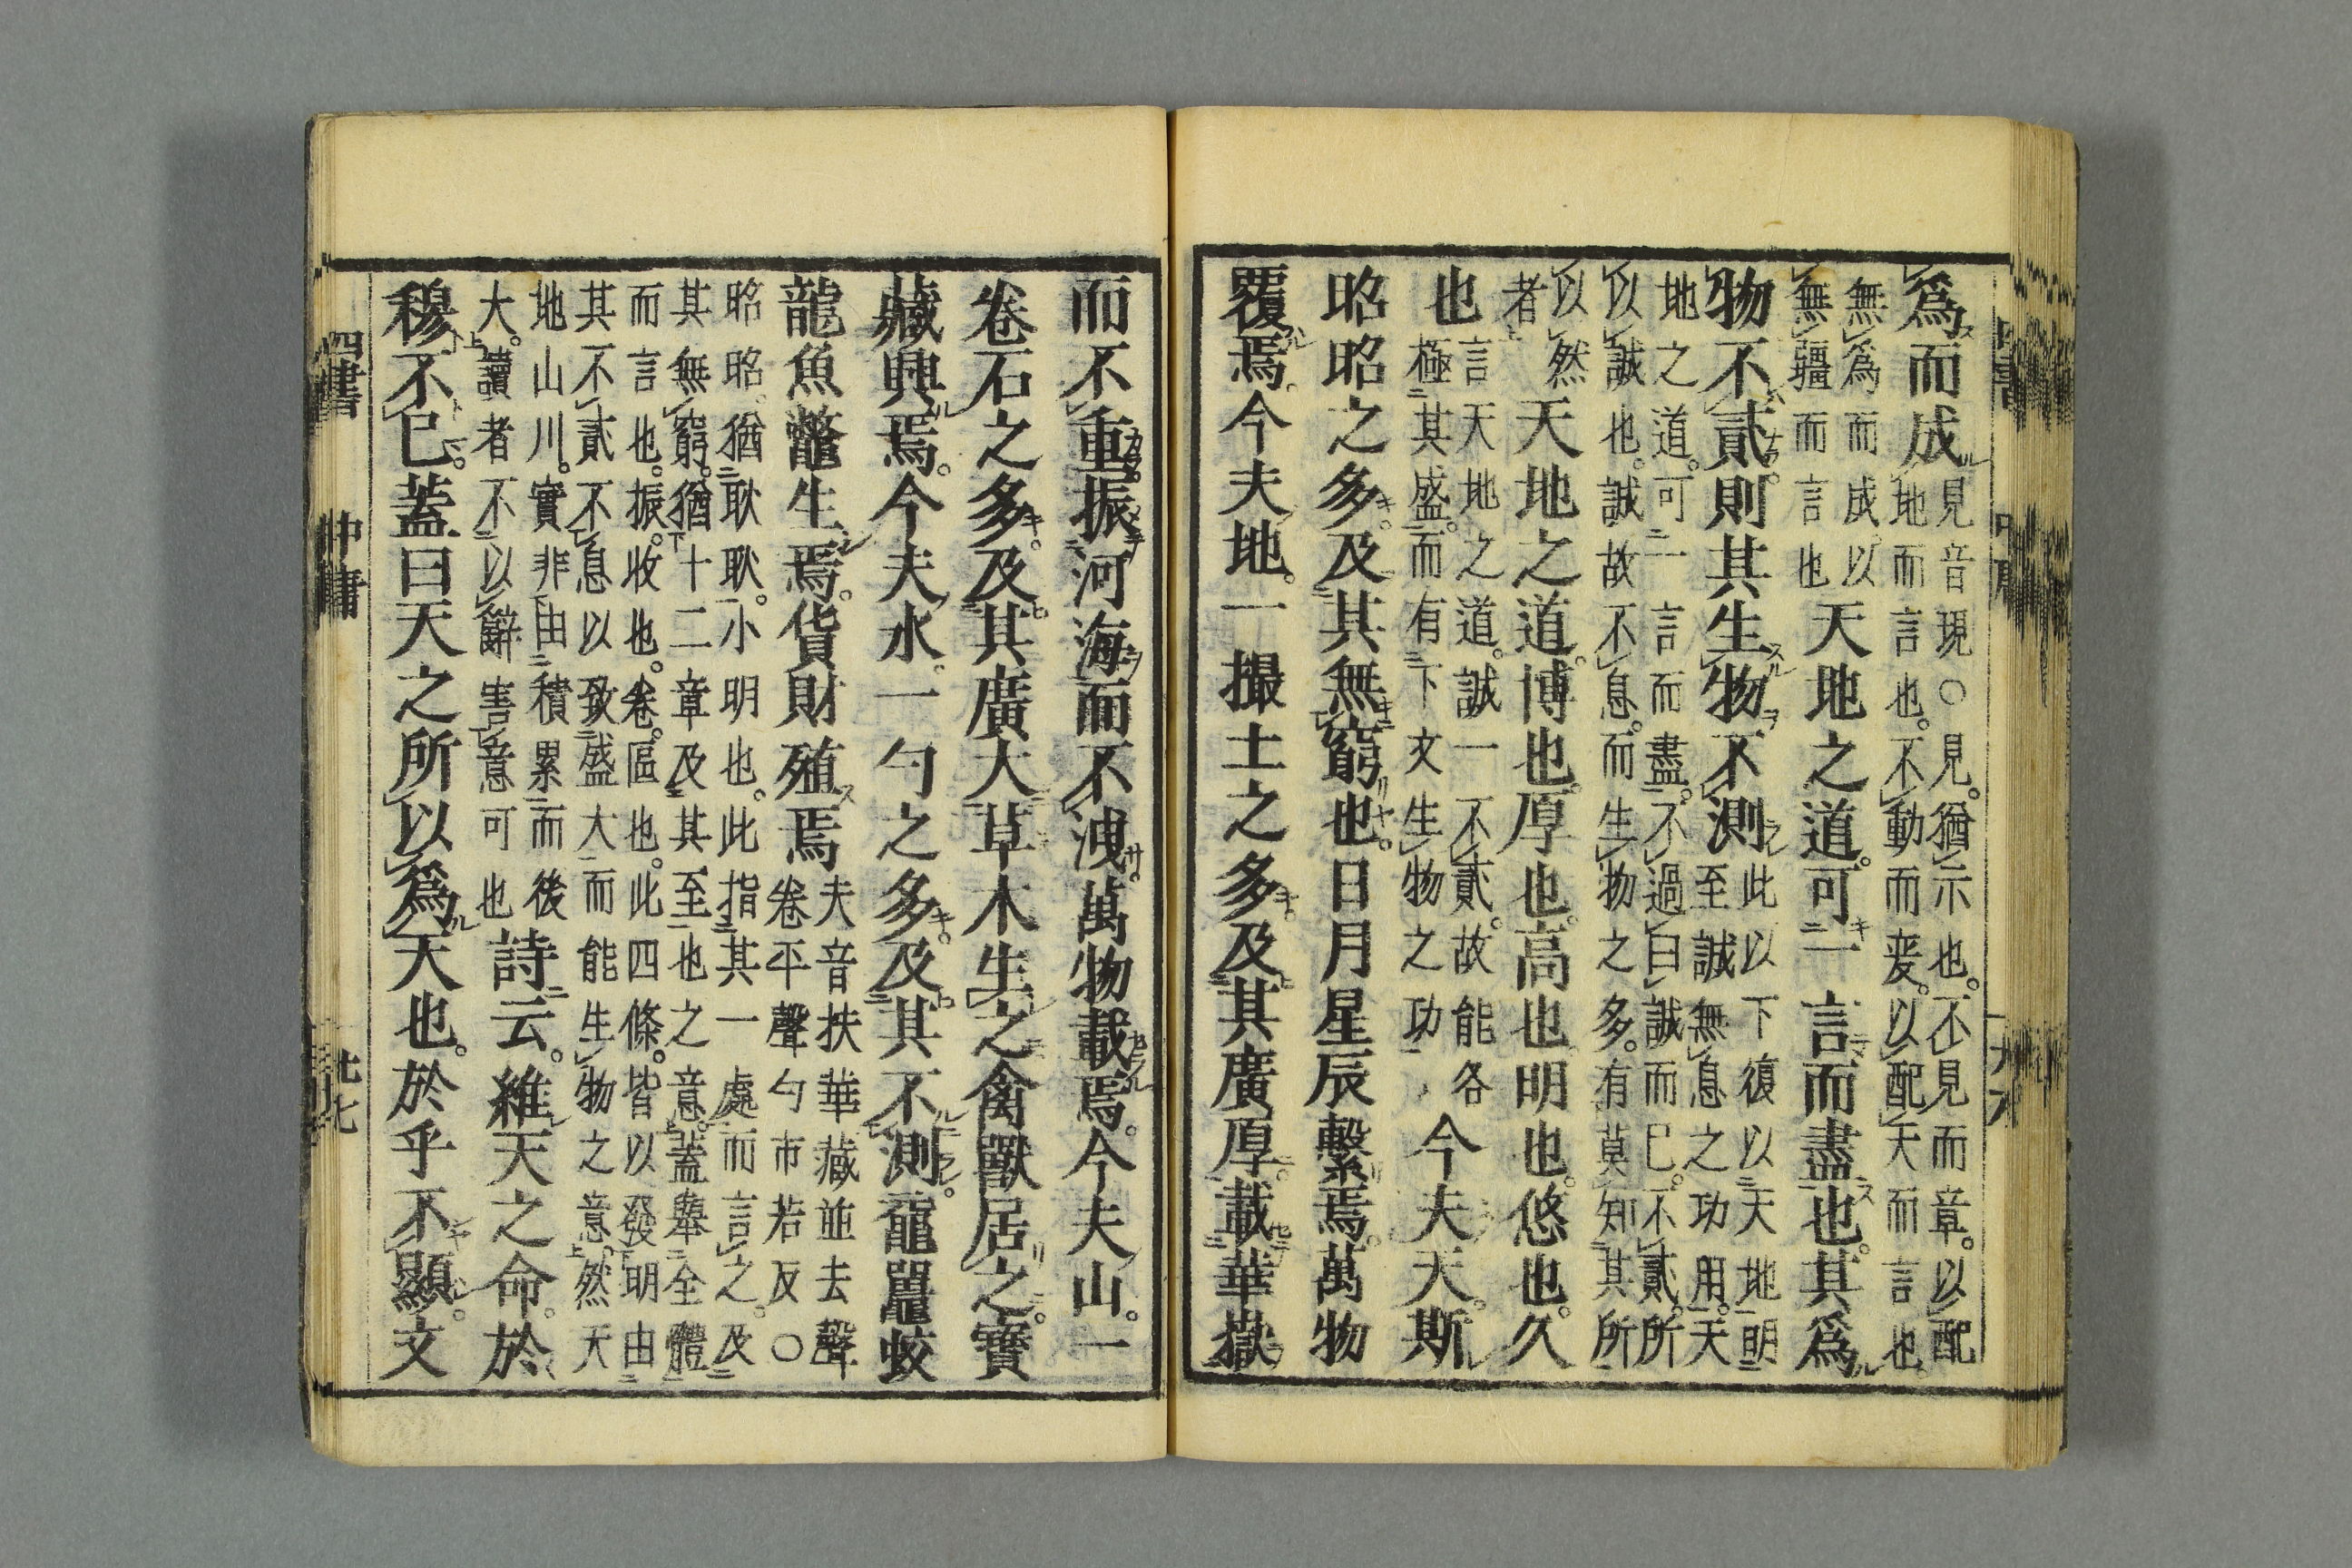 爲而成見音現○見。猶示也。不見而章。以配
地而言也。不動而変。以配天而言也。
無爲而成。以
無疆而言也天地之道。可一言而盡也。其爲
物不貳。則其生物不測此以下復以天地明
至誠無息之功用。天
地之道。可一言而盡。不過曰誠而已。不貳。所
以誠也。誠故不息。而生物之多。有莫知其所
以然
者天地之道。博也。厚也。高也。明也。悠也。久
也言天地之道。誠一不貳。故能各
極其盛。而有下文生物之功今夫天。斯
昭昭之多。及其無窮也。日月星辰繫焉。萬物
覆焉。今夫地。一撮土之多。及其廣厚。載華嶽
而不重。振河海而不洩。萬物載焉。今夫山。一
卷石之多。及其廣大草木生之禽獸居之。寶
藏興焉。今夫水。一勺之多。及其不測。黿鼉蛟
龍魚鼈生焉。貨財殖焉夫音扶華藏並去聲
卷平聲勺市若反○
昭昭。猶耿耿。小明也。此指其一處而言之。及
其無窮。猶十二章及其至也之意。蓋舉全體
而言也。振。收也。卷。區也。此四條。皆以發明由
其不貳不息以致盛大而能生物之意。然天
地山川。實非由積累而後
大。讀者不以辭害意可也詩云。維天之命。於
穆不已。蓋曰天之所以爲天也。於乎不顯。文
四書 中庸